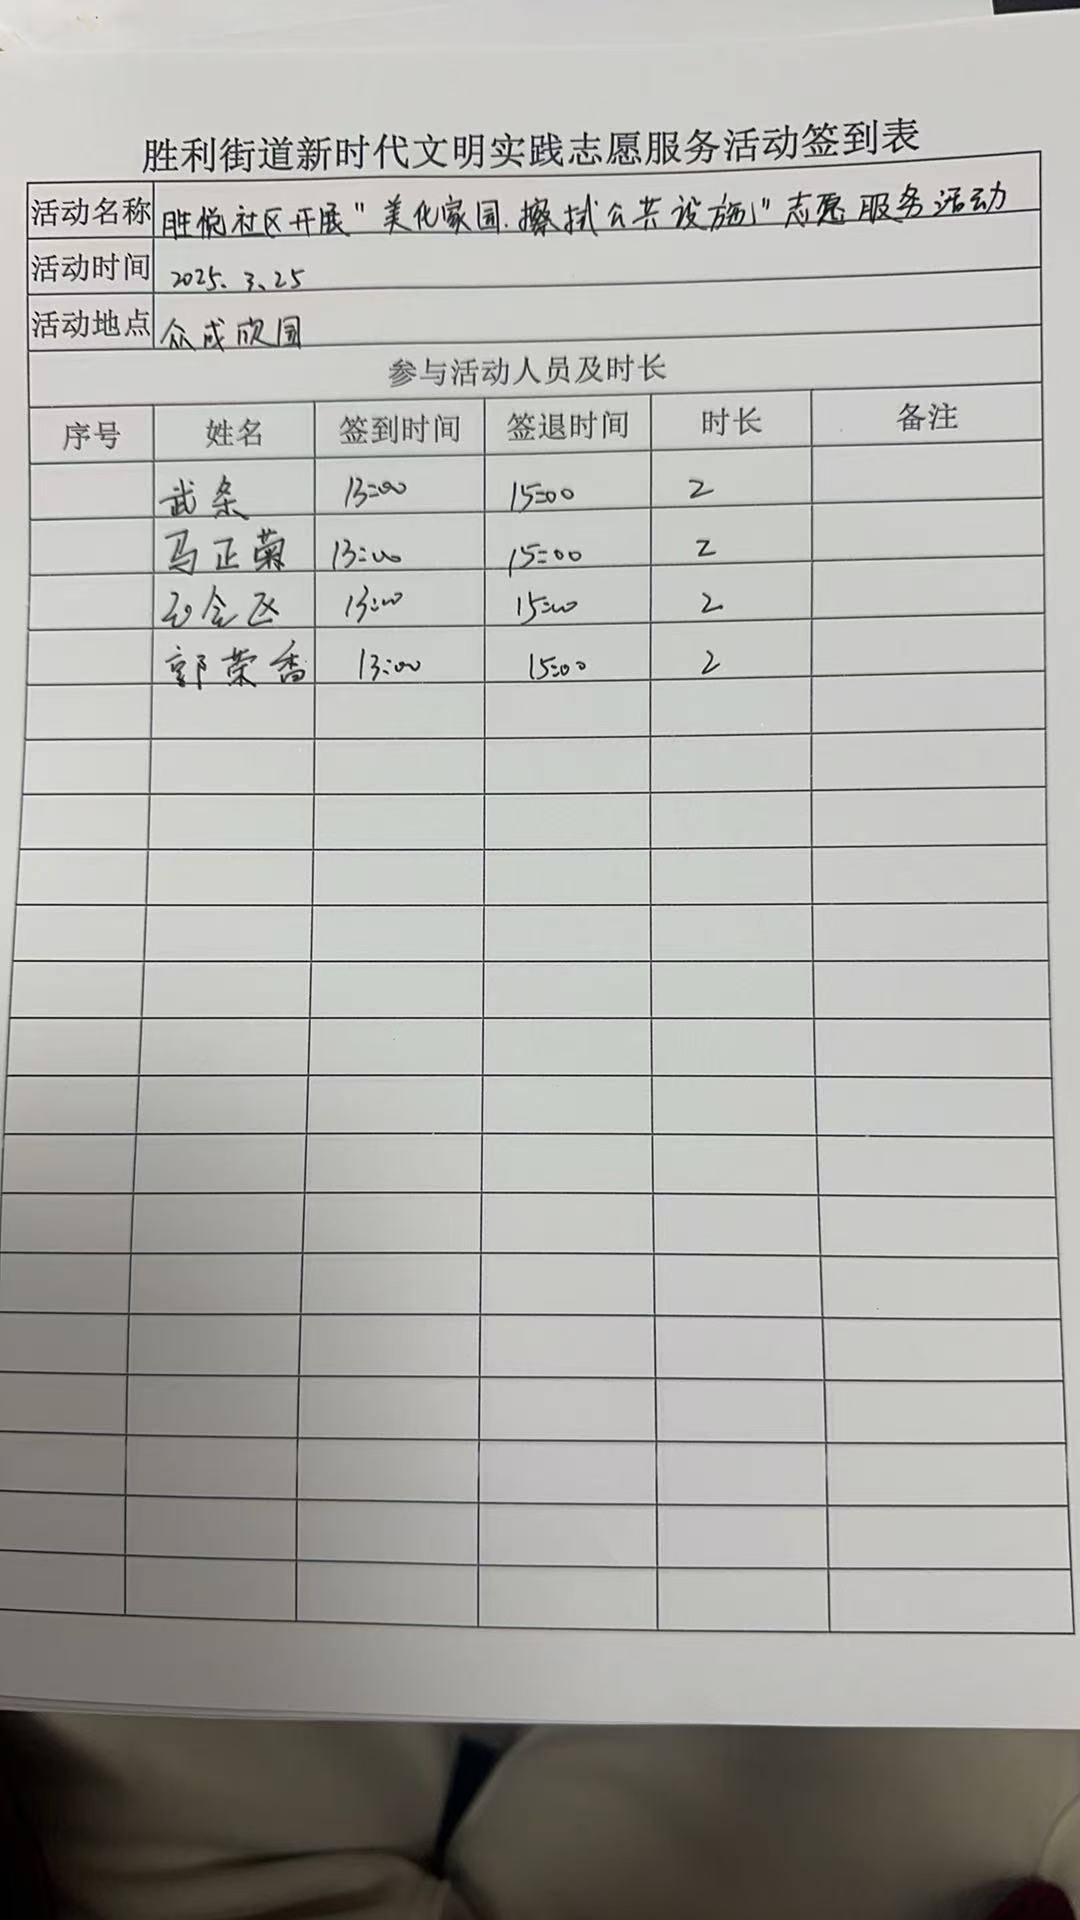 胜利街道新时代文明实践志愿服务活动签到表
活动名称 胜悦社区开展"美化家园.擦拭公共设施"志愿服务活动
活动时间 2025.3.25
活动地点 众成欣园
参与活动人员及时长
序号 姓名 签到时间 签退时间 时长 备注
武条 13:00 15:00 2
马正菊 13:00 15:00 2
13:00 15:00 2
郭荣香 13:00 15:00 2